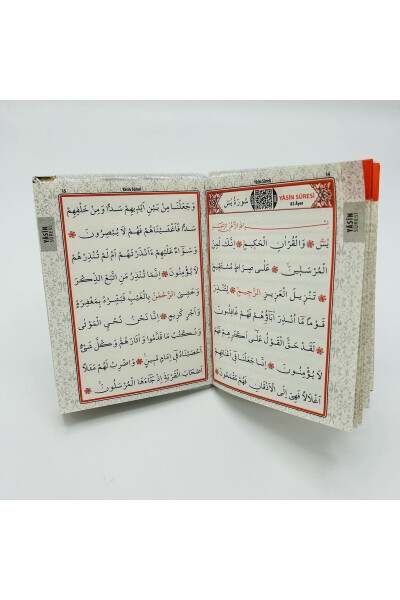 14
Yâsin Sûresi
سُورَةُ يٰسٓ
YÂSÎN SÛRESİ
83 Âyet
يٰسٓ وَالْقُرْاٰنِ الْحَكِيمِ اِنَّكَ لَمِنَ
الْمُرْسَلِينَ عَلٰى صِرَاطٍ مُسْتَقِيمٍ
تَنْزِيلَ الْعَزِيزِ الرَّحِيمِ لِتُنْذِرَ
قَوْمًا مَٓا اُنْذِرَ اٰبَٓاؤُهُمْ فَهُمْ غَافِلُونَ
لَقَدْ حَقَّ الْقَوْلُ عَلٰٓى اَكْثَرِهِمْ فَهُمْ
لَا يُؤْمِنُونَ اِنَّا جَعَلْنَا فِٓى اَعْنَاقِهِمْ
اَغْلَالًا فَهِىَ اِلَى الْاَذْقَانِ فَهُمْ مُقْمَحُونَ
YÂSÎN
SÛRESİ
Yâsin Sûresi
وَجَعَلْنَا مِنْ بَيْنِ اَيْدِيهِمْ سَدًّا وَمِنْ خَلْفِهِمْ
سَدًّا فَاَغْشَيْنَاهُمْ فَهُمْ لَا يُبْصِرُونَ
وَسَوَٓاءٌ عَلَيْهِمْ ءَاَنْذَرْتَهُمْ اَمْ لَمْ تُنْذِرْهُمْ
لَا يُؤْمِنُونَ اِنَّمَا تُنْذِرُ مَنِ اتَّبَعَ الذِّكْرَ
وَخَشِىَ الرَّحْمٰنَ بِالْغَيْبِ فَبَشِّرْهُ بِمَغْفِرَةٍ
وَاَجْرٍ كَرِيمٍ اِنَّا نَحْنُ نُحْىِ الْمَوْتٰى
وَنَكْتُبُ مَا قَدَّمُوا وَاٰثَارَهُمْ وَكُلَّ شَىْءٍ
اَحْصَيْنَاهُ فِٓى اِمَامٍ مُبِينٍ وَاضْرِبْ لَهُمْ مَثَلًا
اَصْحَابَ الْقَرْيَةِ اِذْ جَٓاءَهَا الْمُرْسَلُونَ